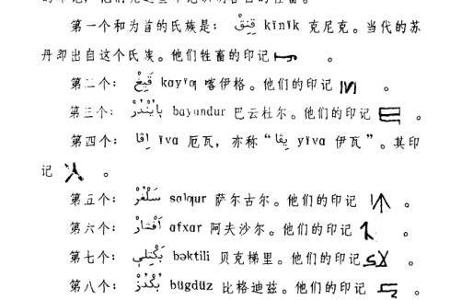 第一个和为首的氏族是：قِنِقْ kïnïk 克尼克。当代的苏
丹即出自这个氏族。他们牲畜的印记 。
第二个：قَيِغْ kayïƣ 喀伊格。他们的印记 。
第三个：بايُنْدُرْ bayundur 巴云杜尔。他们的印记 。
第四个：اِڤا ïva 厄瓦，亦称“يِڤا yïva 伊瓦”。其印
记 。
第五个：سَلْغُرْ salƣur 萨尔古尔。他们的印记 。
第六个：اَفْشارْ afxar 阿夫沙尔。他们的印记 。
第七个：بَكْتِلي bəktili 贝克梯里。他们的印记 。
第八个：بُكْدُزْ bügdüz 比格迪兹。他们的印记 。